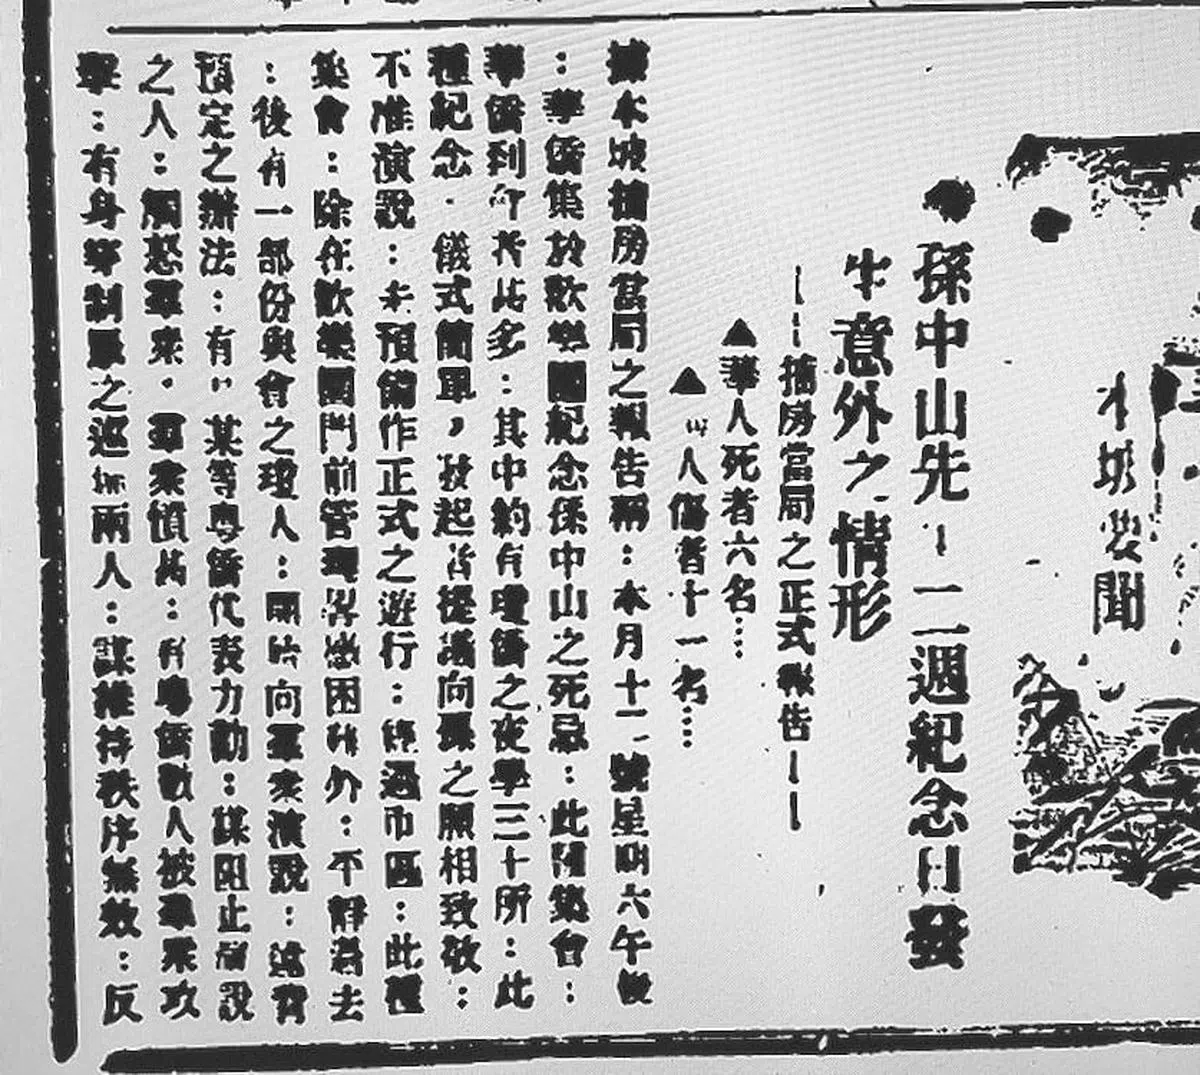 本坡要聞
●孫中山先生二週紀念日發
生意外之情形
——捕房當局之正式報告——
▲華人死者六名…
▲人傷者十一名…
據本坡捕房當局之報告稱：本月十二號星期六午後
：華僑集於歡樂園紀念孫中山之死忌：此種集會：
華僑到者甚多：其中約有瓊僑之夜學三十所：此
種紀念．儀式簡單，發起者提議向孫之照相致敬：
不准演說：未預備作正式之遊行：經過市區：此種
集會：除在歡樂園門前管理羣衆困難外：平靜過去
：後有一部份與會之瓊人：開始向羣衆演說：違背
預定之辦法：有某等粵僑代表力勸：謀阻止演說
之人：觸怒羣衆．羣衆憤甚：有粵僑數人被羣衆攻
擊：有身穿制服之巡捕兩人：謀維持秩序無效：反